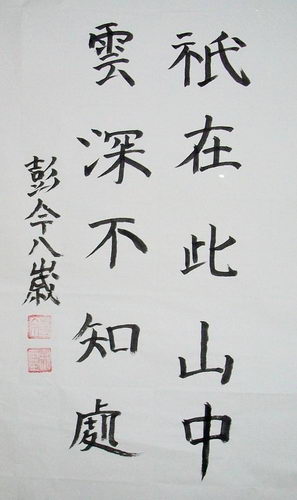 祇在此山中
雲深不知處
彭今八歲